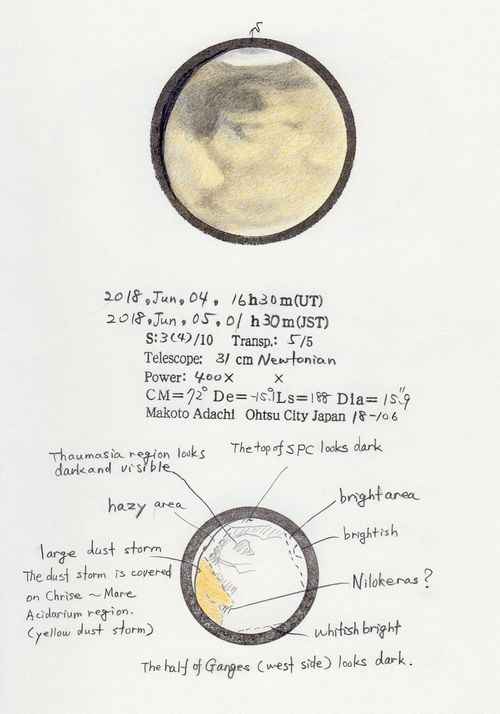 S
2018, Jun, 04, 16h30m(UT)
2018, Jun, 05, 01h30m(JST)
S:3(4)/10 Transp.: 5/5
Telescope: 31 cm Newtonian
Power: 400× ×
CM=72° De=-15.9° Ls=188 Dia=15".9
Makoto Adachi Ohtsu City Japan 18-106
Thaumasia region looks
dark and visible
The top of SPC looks dark
hazy area
bright area
brightish
large dust storm
The dust storm is covered
on Chrise ~ Mare
Acidarium region.
(yellow dust storm)
Nilokeras?
whitish bright
The half of Ganges (west side) looks dark.